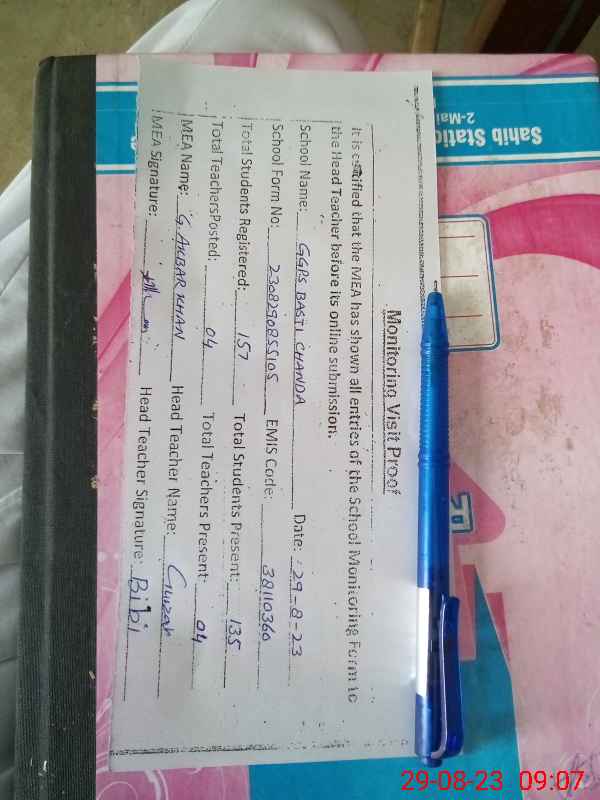 Monitoring Visit Proof
It is certified that the MEA has shown all entries of the School Monitoring Form to
the Head Teacher before its online submission.
School Name: GGPS BASTI CHANDA Date: 29-8-23
School Form No: 2308290855105 EMIS Code: 38110360
Total Students Registered: 157 Total Students Present: 135
Total TeachersPosted: 04 Total Teachers Present: 04
MEA Name: G. AKBAR KHAN Head Teacher Name: Gulzar
MEA Signature: Head Teacher Signature: Bibi
Sahib Stati
2-Mai
29-08-23 09:07